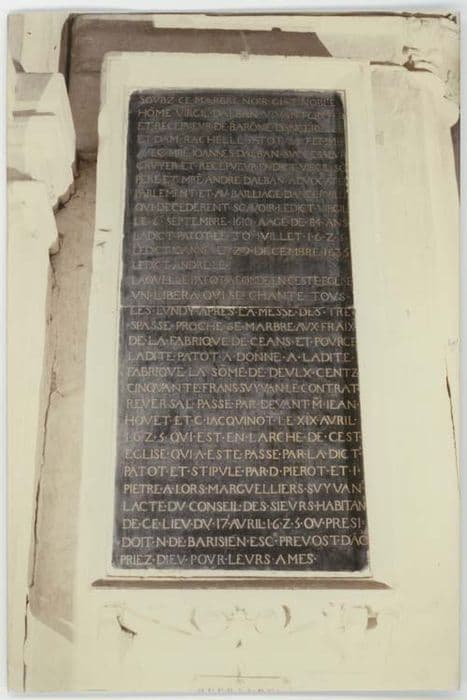 SOVBZ·CE·MARBRE·NOIR·GIST·NOBLE
HŌME·VIRGIL·DALBAN·VIVANT
ET·RECEPVEVR·DE·BARŌNE·DANCERVIL
ET·DAM·RACHELLE·PATOT·SA·FEMME
AVEC·MRE·IOANNES·DALBAN
GRVYER·ET·RECEPVEVR·DVDICT
PERE·ET·MRE·ANDRE·DALBAN·ADVOCAT
PARLEMENT·ET·AV·BAILLIAGE·DANCERVIL
QVI·DECEDERENT·SCAVOIR·LEDICT·VIRGIL
LE·6·SEPTEMBRE·1610·AAGE·DE·84·ANS
LADICT·PATOT·LE·IVILLET·1·6·2·5
LEDICT·IEANNE·LE·29·DECEMBRE·1635
LEDICT·ANDRE·LE
LAQVELLE·PATOT·A·FONDE·EN·CEST·EGLISE
VN·LIBERA·QVI·SE·CHANTE·TOVS
LES·LVNDY·APRES·LA·MESSE·DES·TRE
SPASSE·PROCHE·SE·MARBRE·AVX·FRAIX
DE·LA·FABRIQVE·DE·CEANS·ET·POVRCE
LADITE·PATOT·A·DONNE·A·LADITE·
FABRIQVE·LA·SOME·DE·DEVLX·CENTZ
CINQVANTE·FRANS·SVYVAN·LE·CONTRAT
REVERSAL·PASSE·PAR·DEVANT·M·IEAN·
HOVET·ET·C·IACQVINOT·LE·XIX·AVRIL·
1·6·2·5·QVI·EST·EN·LARCHE·DE·CEST·
EGLISE·QVI·A·ESTE·PASSE·PAR·LA·DICT·
PATOT·ET·STIPVLE·PAR·D·PIEROT·ET·I·
PIETRE·ALORS·MARGVELLIERS·SVYVAN
LACTE·DV·CONSEIL·DES·SIEVRS·HABITAN
DE·CE·LIEV·DV·17·AVRIL·1·6·2·5·OV·PRESI·
DOIT·N·DE·BARISIEN·ESC·PREVOST·DĀC
PRIEZ·DIEV·POVR·LEVRS·AMES·